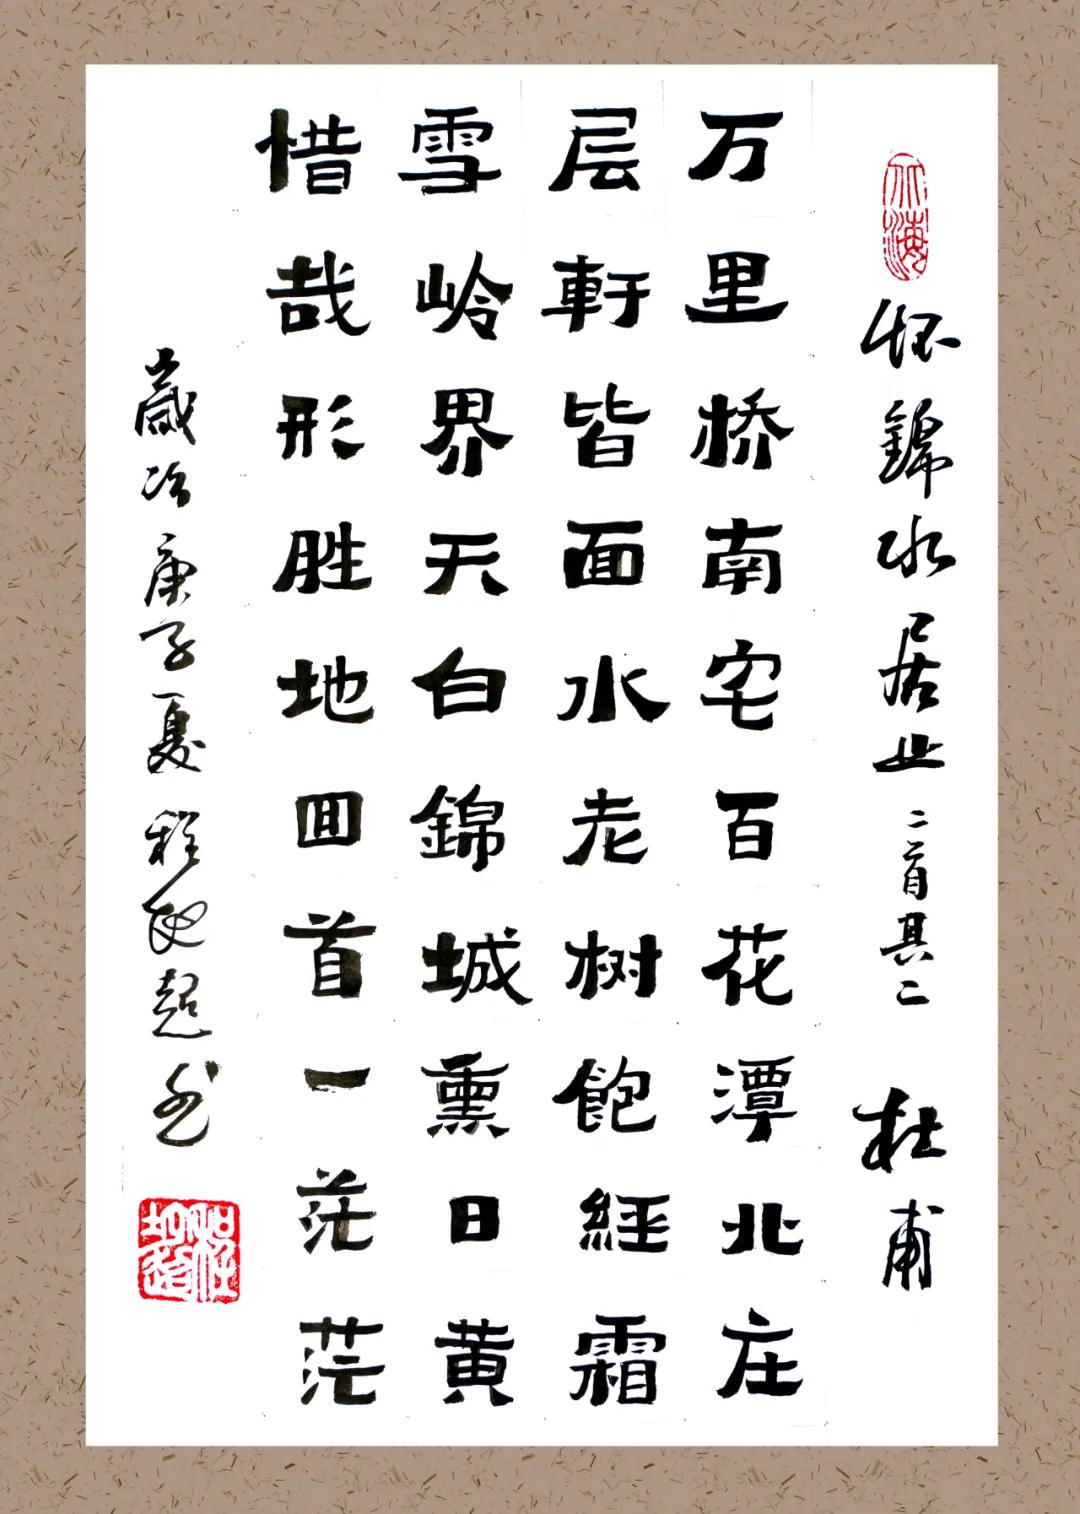 怀錦水居止二首其二 杜甫
万里桥南宅百花潭北庄
层軒皆面水老树飽經霜
雪岭界天白錦城熏日黄
惜哉形胜地囬首一茫茫
歲次庚子夏程超书